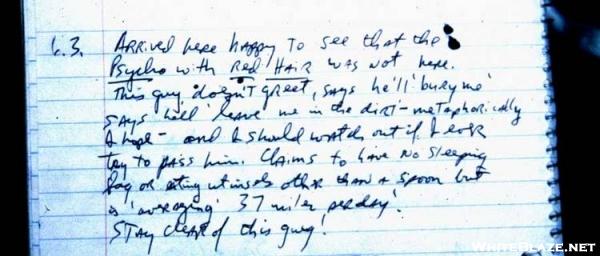 6.3. Arrived here happy to see that the
Psycho with Red Hair was not here.
This guy doesn't greet, says he'll 'bury me'
says he'll 'leave me in the dirt' - metaphorically
I hope - and I should watch out if I ever
try to pass him. Claims to have no sleeping
bag or eating utensils other than a spoon but
is 'averaging' 37 miles per day'.
Stay clear of this guy!
WhiteBlaze.net